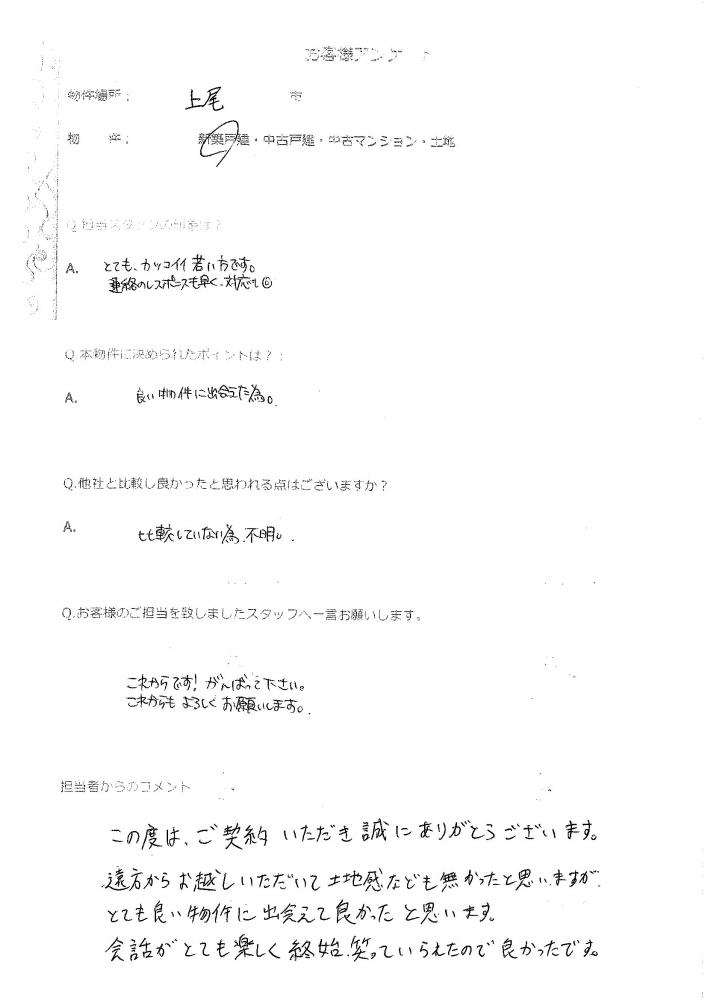 お客様アンケート
物件場所： 上尾 市
物 件： 新築戸建・中古戸建・中古マンション・土地
Q.担当スタッフの印象は？
A. とても、カッコイイ若い方です。
連絡のレスポンスも早く、対応も◎
Q.本物件に決められたポイントは？：
A. 良い物件に出会えた為。
Q.他社と比較し良かったと思われる点はございますか？
A. 比較していない為、不明。
Q.お客様のご担当を致しましたスタッフへ一言お願いします。
これからです！がんばって下さい。
これからもよろしくお願いします。
担当者からのコメント
この度は、ご契約いただき誠にありがとうございます。
遠方からお越しいただいて土地感なども無かったと思いますが、
とても良い物件に出会えて良かったと思います。
会話がとても楽しく終始、笑っていられたので良かったです。